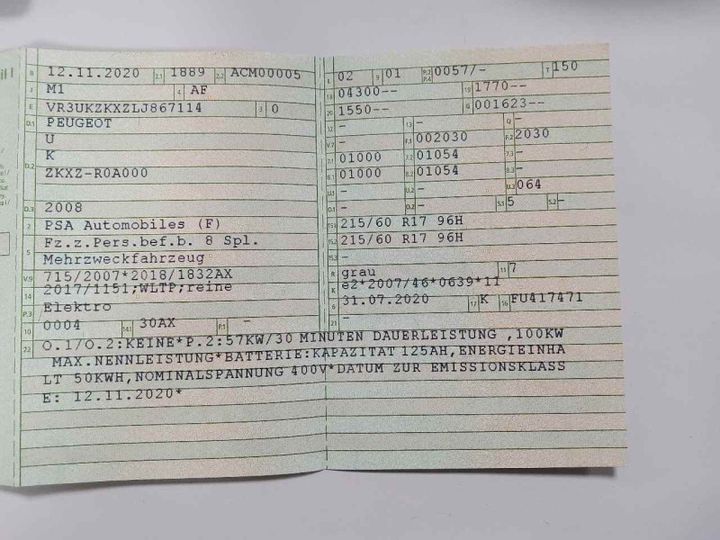 B 12.11.2020 2.1 1889 2.2 ACM00005
J M1 4 AF
E VR3UKZKXZLJ867114 3 0
D.1 PEUGEOT
U
D.2 K
ZKXZ-R0A000
D.3 2008
2 PSA Automobiles (F)
5 Fz.z.Pers.bef.b. 8 Spl.
Mehrzweckfahrzeug
V.9 715/2007*2018/1832AX
14 2017/1151;WLTP;reine
P.3 Elektro
10 0004 14.1 30AX P.1 -
L 02 9 01 P.2 P.4 0057/- T 150
18 04300-- 19 1770--
20 1550-- G 001623--
12 - 13 - Q -
V.7 - F.1 002030 F.2 2030
7.1 01000 7.2 01054 7.3 -
8.1 01000 8.2 01054 8.3 -
U.1 - U.2 - U.3 064
O.1 - O.2 - S.1 5 S.2 -
15.1 215/60 R17 96H
15.2 215/60 R17 96H
-
R grau 11 7
K e2*2007/46*0639*11
6 31.07.2020 17 K 16 FU417471
21 -
22 O.1/O.2:KEINE*P.2:57KW/30 MINUTEN DAUERLEISTUNG ,100KW
MAX.NENNLEISTUNG*BATTERIE:KAPAZITAT 125AH,ENERGIEINHA
LT 50KWH,NOMINALSPANNUNG 400V*DATUM ZUR EMISSIONSKLASS
E: 12.11.2020*